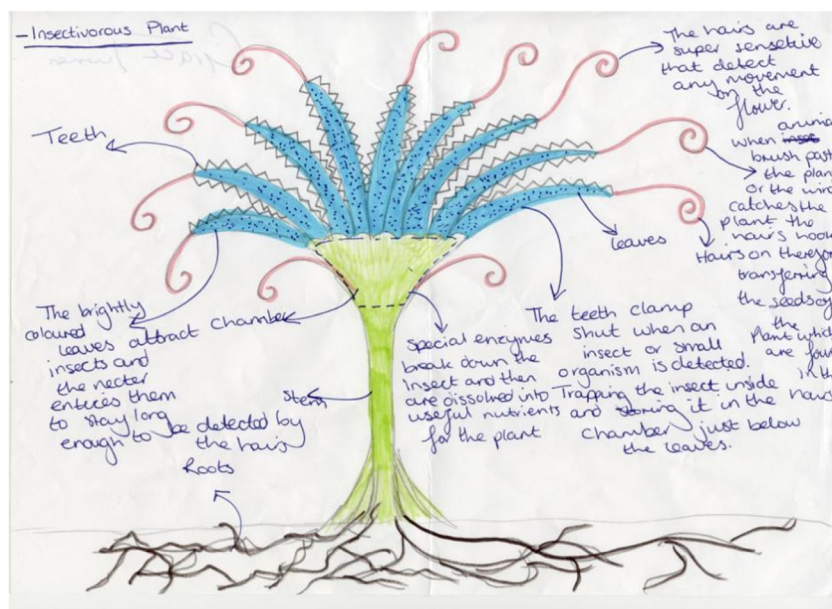 - Insectivorous Plant
The hairs are
super sensetive
that detect
any movement
on the
flower.
Teeth
animal
when insect
brush past
the plant
or the wind
catches the
plant the
hairs hook
Hairs on therefore
transferring
the seeds of
the
Plant which
are found
in the
leaves
The brightly
coloured
leaves attract
insects and
the necter
entices them
to stay long
enough to be detected by
the hairs
Chamber
Special enzymes
break down the
Insect and then
are dissolved into
useful nutrients
for the plant
The teeth clamp
Shut when an
insect or small
organism is detected.
Trapping the insect inside
and storing it in the
Chamber just below
the leaves.
Stem
Roots